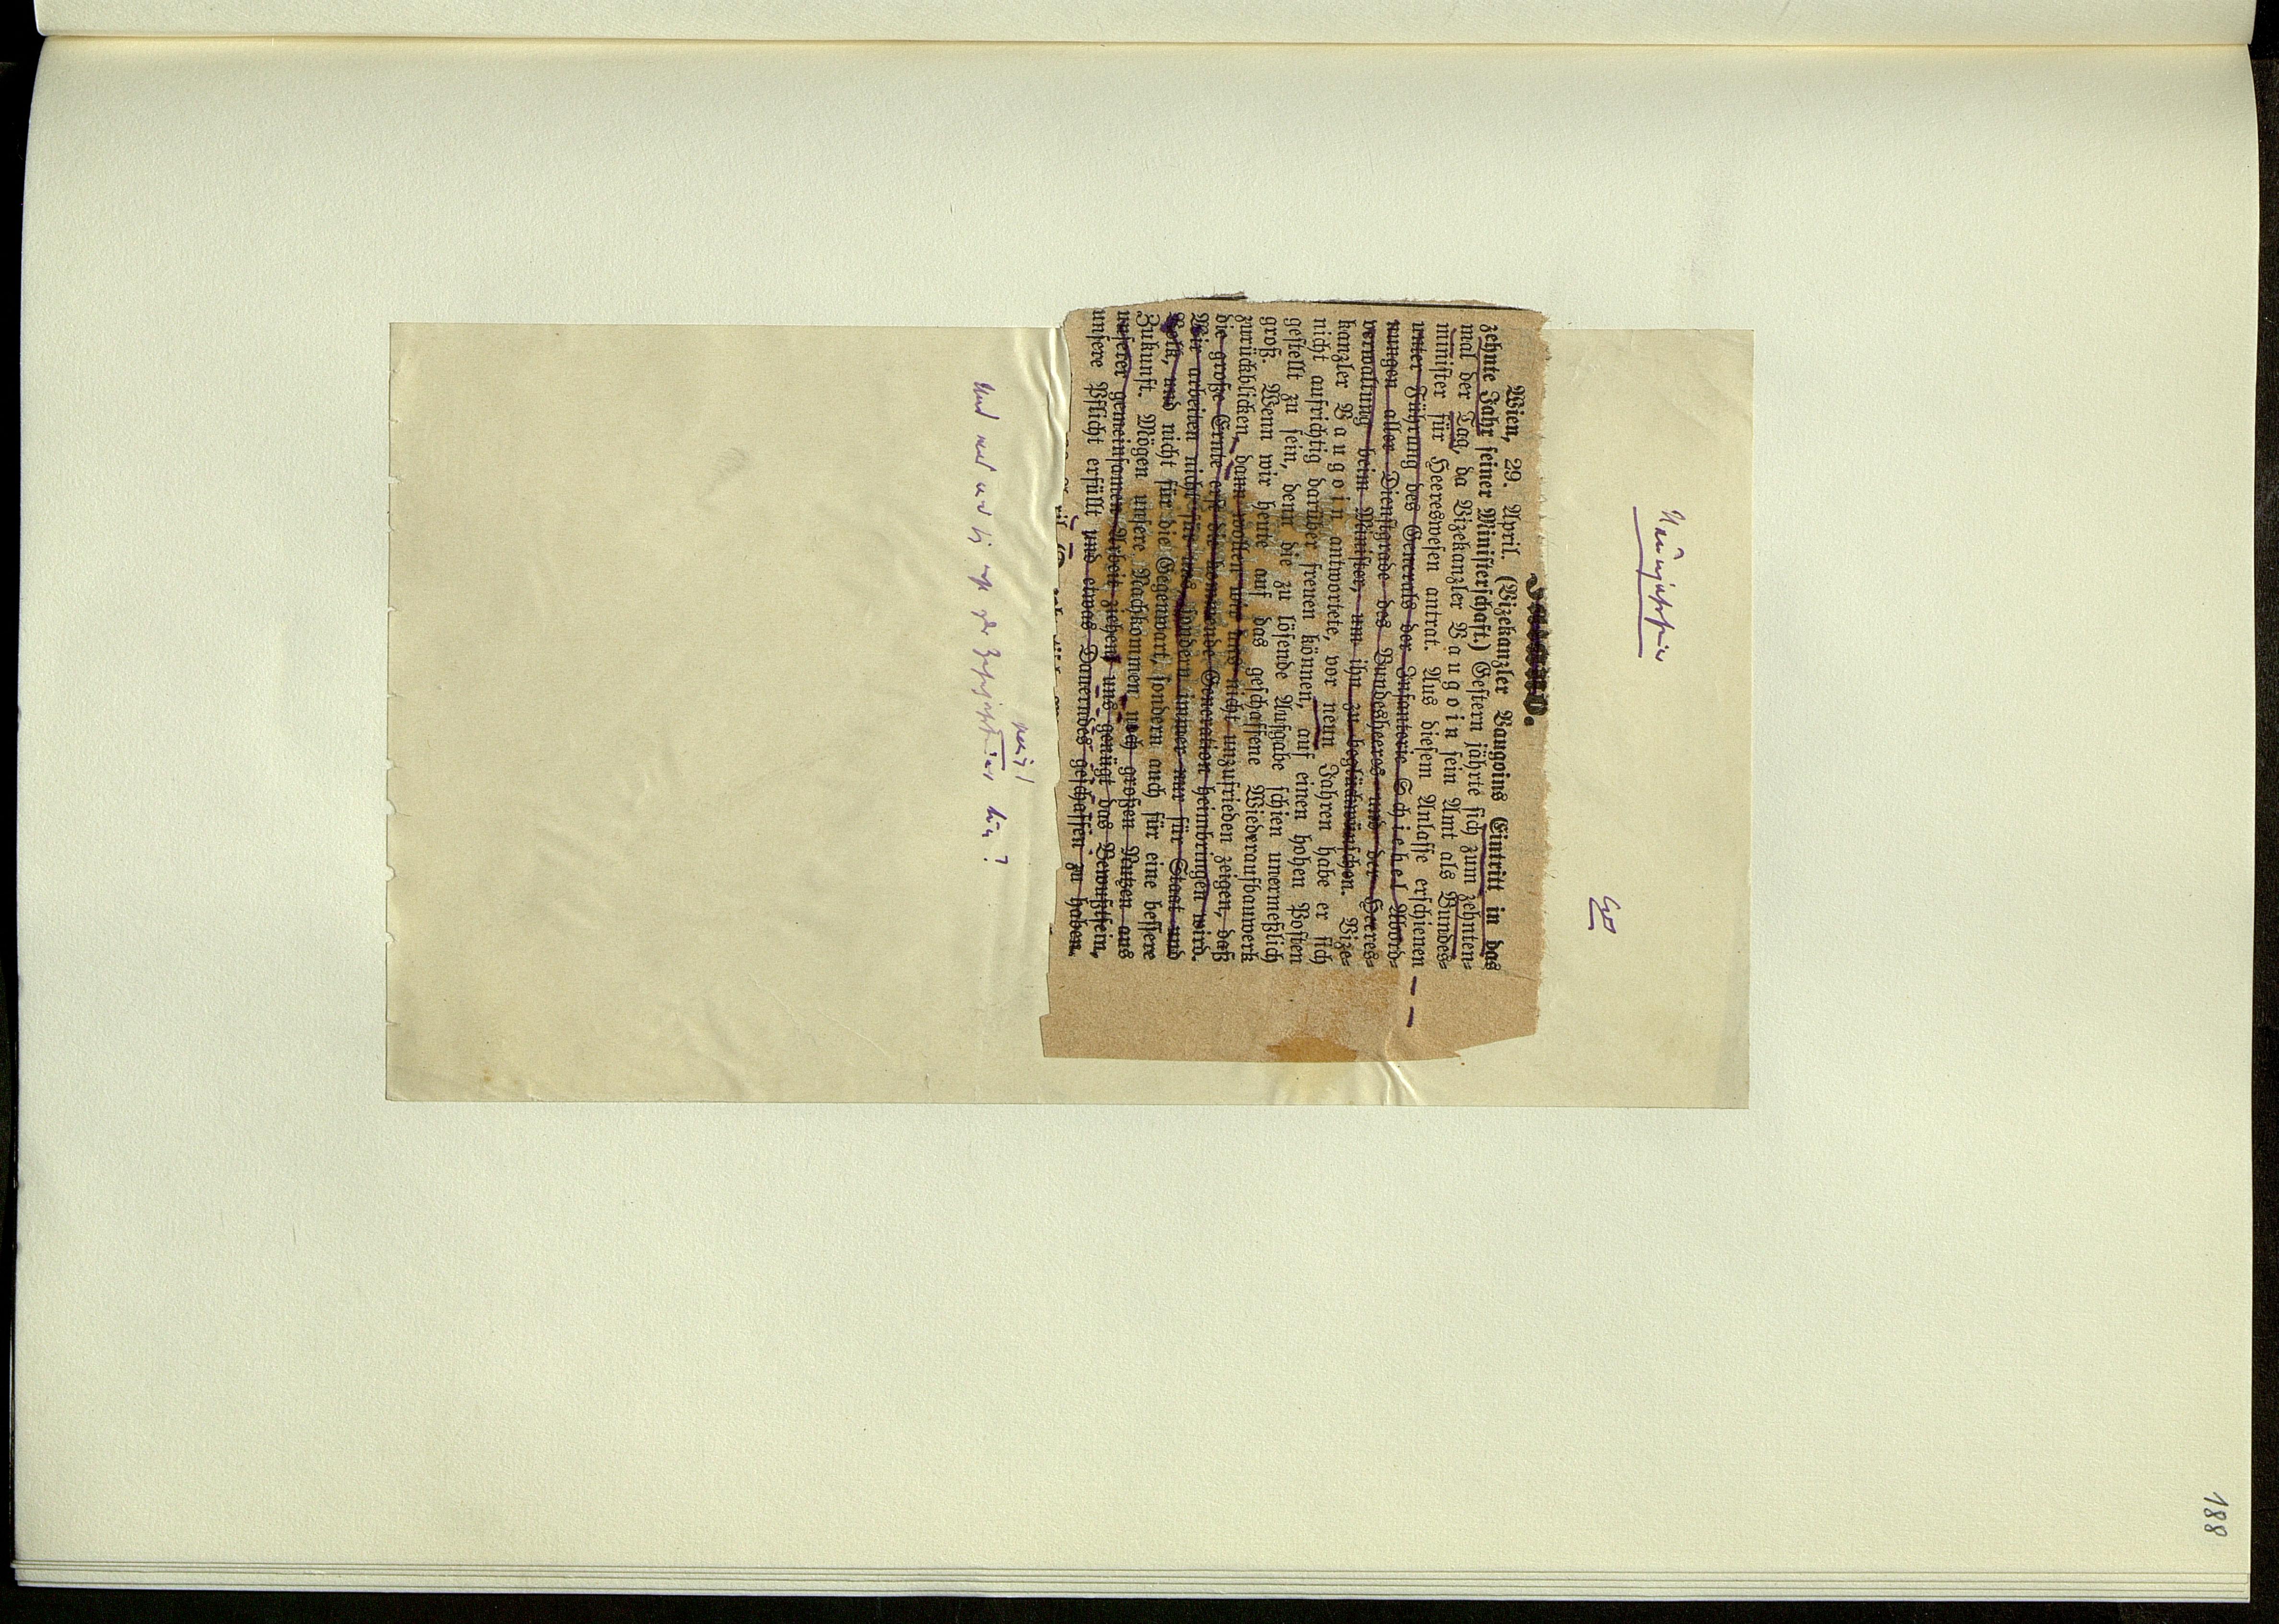 188
Neunjahrfeier
Inland.
Wien, 29. April. (Vizekanzler Vaugoins Eintritt in das
zehnte Jahr seiner Ministerschaft.) Gestern jährte sich zum zehnten-
mal der Tag, da Vizekanzler Vaugoin sein Amt als Bundes-
minister für Heereswesen antrat. Aus diesem Anlasse erschienen
unter Führung des Generals der Infanterie Schiebel Abord-
nungen aller Dienstgrade des Bundesheeres und der Heeres-
verwaltung beim Minister, um ihn zu beglückwünschen. Vize-
kanzler Vaugoin antwortete, vor neun Jahren habe er sich
nicht aufrichtig darüber freuen können, auf einen hohen Posten
gestellt zu sein, denn die zu lösende Aufgabe schien unermeßlich
groß. Wenn wir heute auf das geschaffene Wiederaufbauwerk
zurückblicken, dann wollen wir uns nicht unzufrieden zeigen, daß
die große Ernte erst die kommende Generation heimbringen wird.
Wir arbeiten nicht für uns, sondern immer nur für Staat und
Volk, und nicht für die Gegenwart, sondern auch für eine bessere
Zukunft. Mögen unsere Nachkommen noch großen Nutzen aus
unserer gemeinsamen Arbeit ziehen, uns genügt das Bewußtsein,
unsere Pflicht erfüllt und etwas Dauerndes geschaffen zu haben.